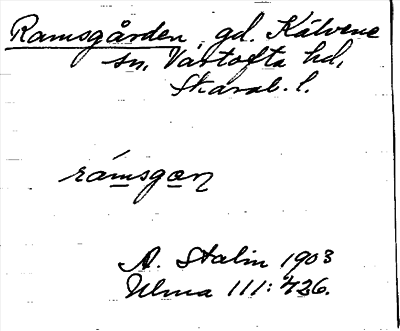 Ramsgården, gd. Kälvene
sn, Vartofta hd,
Skarab. l.
rámsgɑn
A. Stalin 1903
Ulma 111: 426.